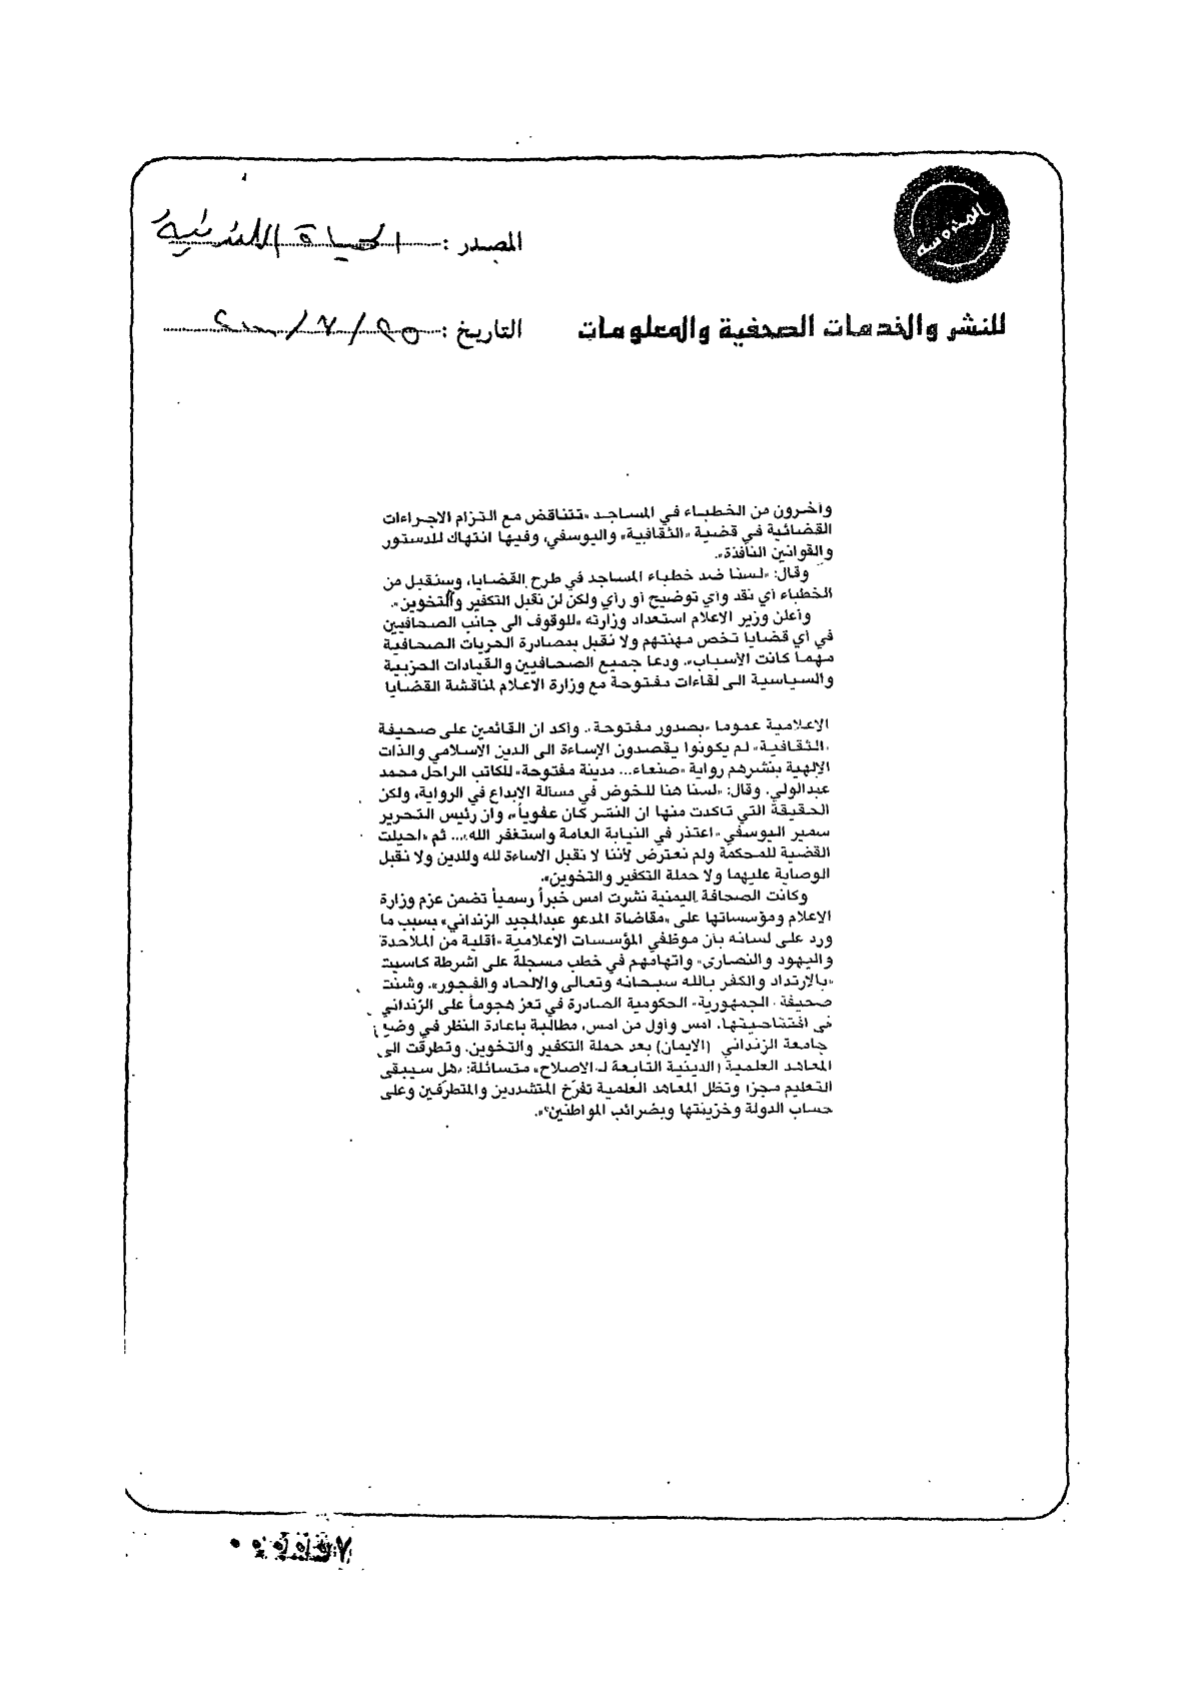 المصدر : الحياة اللندنية
للنشر والخدمات الصحفية والمعلومات
التاريخ : ٢٥ / ٧ / ٢٠٠٠
وآخرون من الخطباء في المساجد «تتناقض مع التزام الاجراءات
القضائية في قضية «الثقافية» واليوسفي، وفيها انتهاك للدستور
والقوانين النافذة».
وقال: «لسنا ضد خطباء المساجد في طرح القضايا، وسنقبل من
الخطباء أي نقد وأي توضيح أو رأي ولكن لن نقبل التكفير والتخوين».
وأعلن وزير الاعلام استعداد وزارته «للوقوف الى جانب الصحافيين
في أي قضايا تخص مهنتهم ولا نقبل بمصادرة الحريات الصحافية
مهما كانت الأسباب». ودعا جميع الصحافيين والقيادات الحزبية
والسياسية الى لقاءات مفتوحة مع وزارة الاعلام لمناقشة القضايا
الإعلامية عموما «بصدور مفتوحة». وأكد ان القائمين على صحيفة
«الثقافية» لم يكونوا يقصدون الإساءة الى الدين الاسلامي والذات
الإلهية بنشرهم رواية «صنعاء... مدينة مفتوحة» للكاتب الراحل محمد
عبدالولي. وقال: «لسنا هنا للخوض في مسألة الإبداع في الرواية، ولكن
الحقيقة التي تأكدت منها ان النشر كان عفوياً»، وان رئيس التحرير
سمير اليوسفي «اعتذر في النيابة العامة واستغفر الله»... ثم «احيلت
القضية للمحكمة ولم نعترض لأننا لا نقبل الاساءة لله وللدين ولا نقبل
الوصاية عليهما ولا حملة التكفير والتخوين».
وكانت الصحافة اليمنية نشرت امس خبراً رسمياً تضمن عزم وزارة
الاعلام ومؤسساتها على «مقاضاة المدعو عبدالمجيد الزنداني» بسبب ما
ورد على لسانه بأن موظفي المؤسسات الإعلامية «أقلية من الملاحدة
واليهود والنصارى» واتهامهم في خطب مسجلة على اشرطة كاسيت
«بالارتداد والكفر بالله سبحانه وتعالى والالحاد والفجور». وشنت
صحيفة «الجمهورية» الحكومية الصادرة في تعز هجوماً على الزنداني
في افتتاحيتها، امس وأول من امس، مطالبة بإعادة النظر في وضع
جامعة الزنداني (الايمان) بعد حملة التكفير والتخوين. وتطرقت الى
المعاهد العلمية (الدينية التابعة لـ«الاصلاح» متسائلة: «هل سيبقى
التعليم مجزا وتظل المعاهد العلمية تفرّخ المتشددين والمتطرفين وعلى
حساب الدولة وخزينتها وبضرائب المواطنين؟».